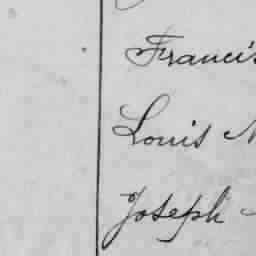 Francis
Louis
Joseph